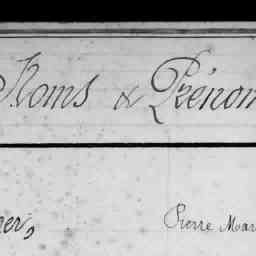 Noms & Prénom
rer, Pierre Mar